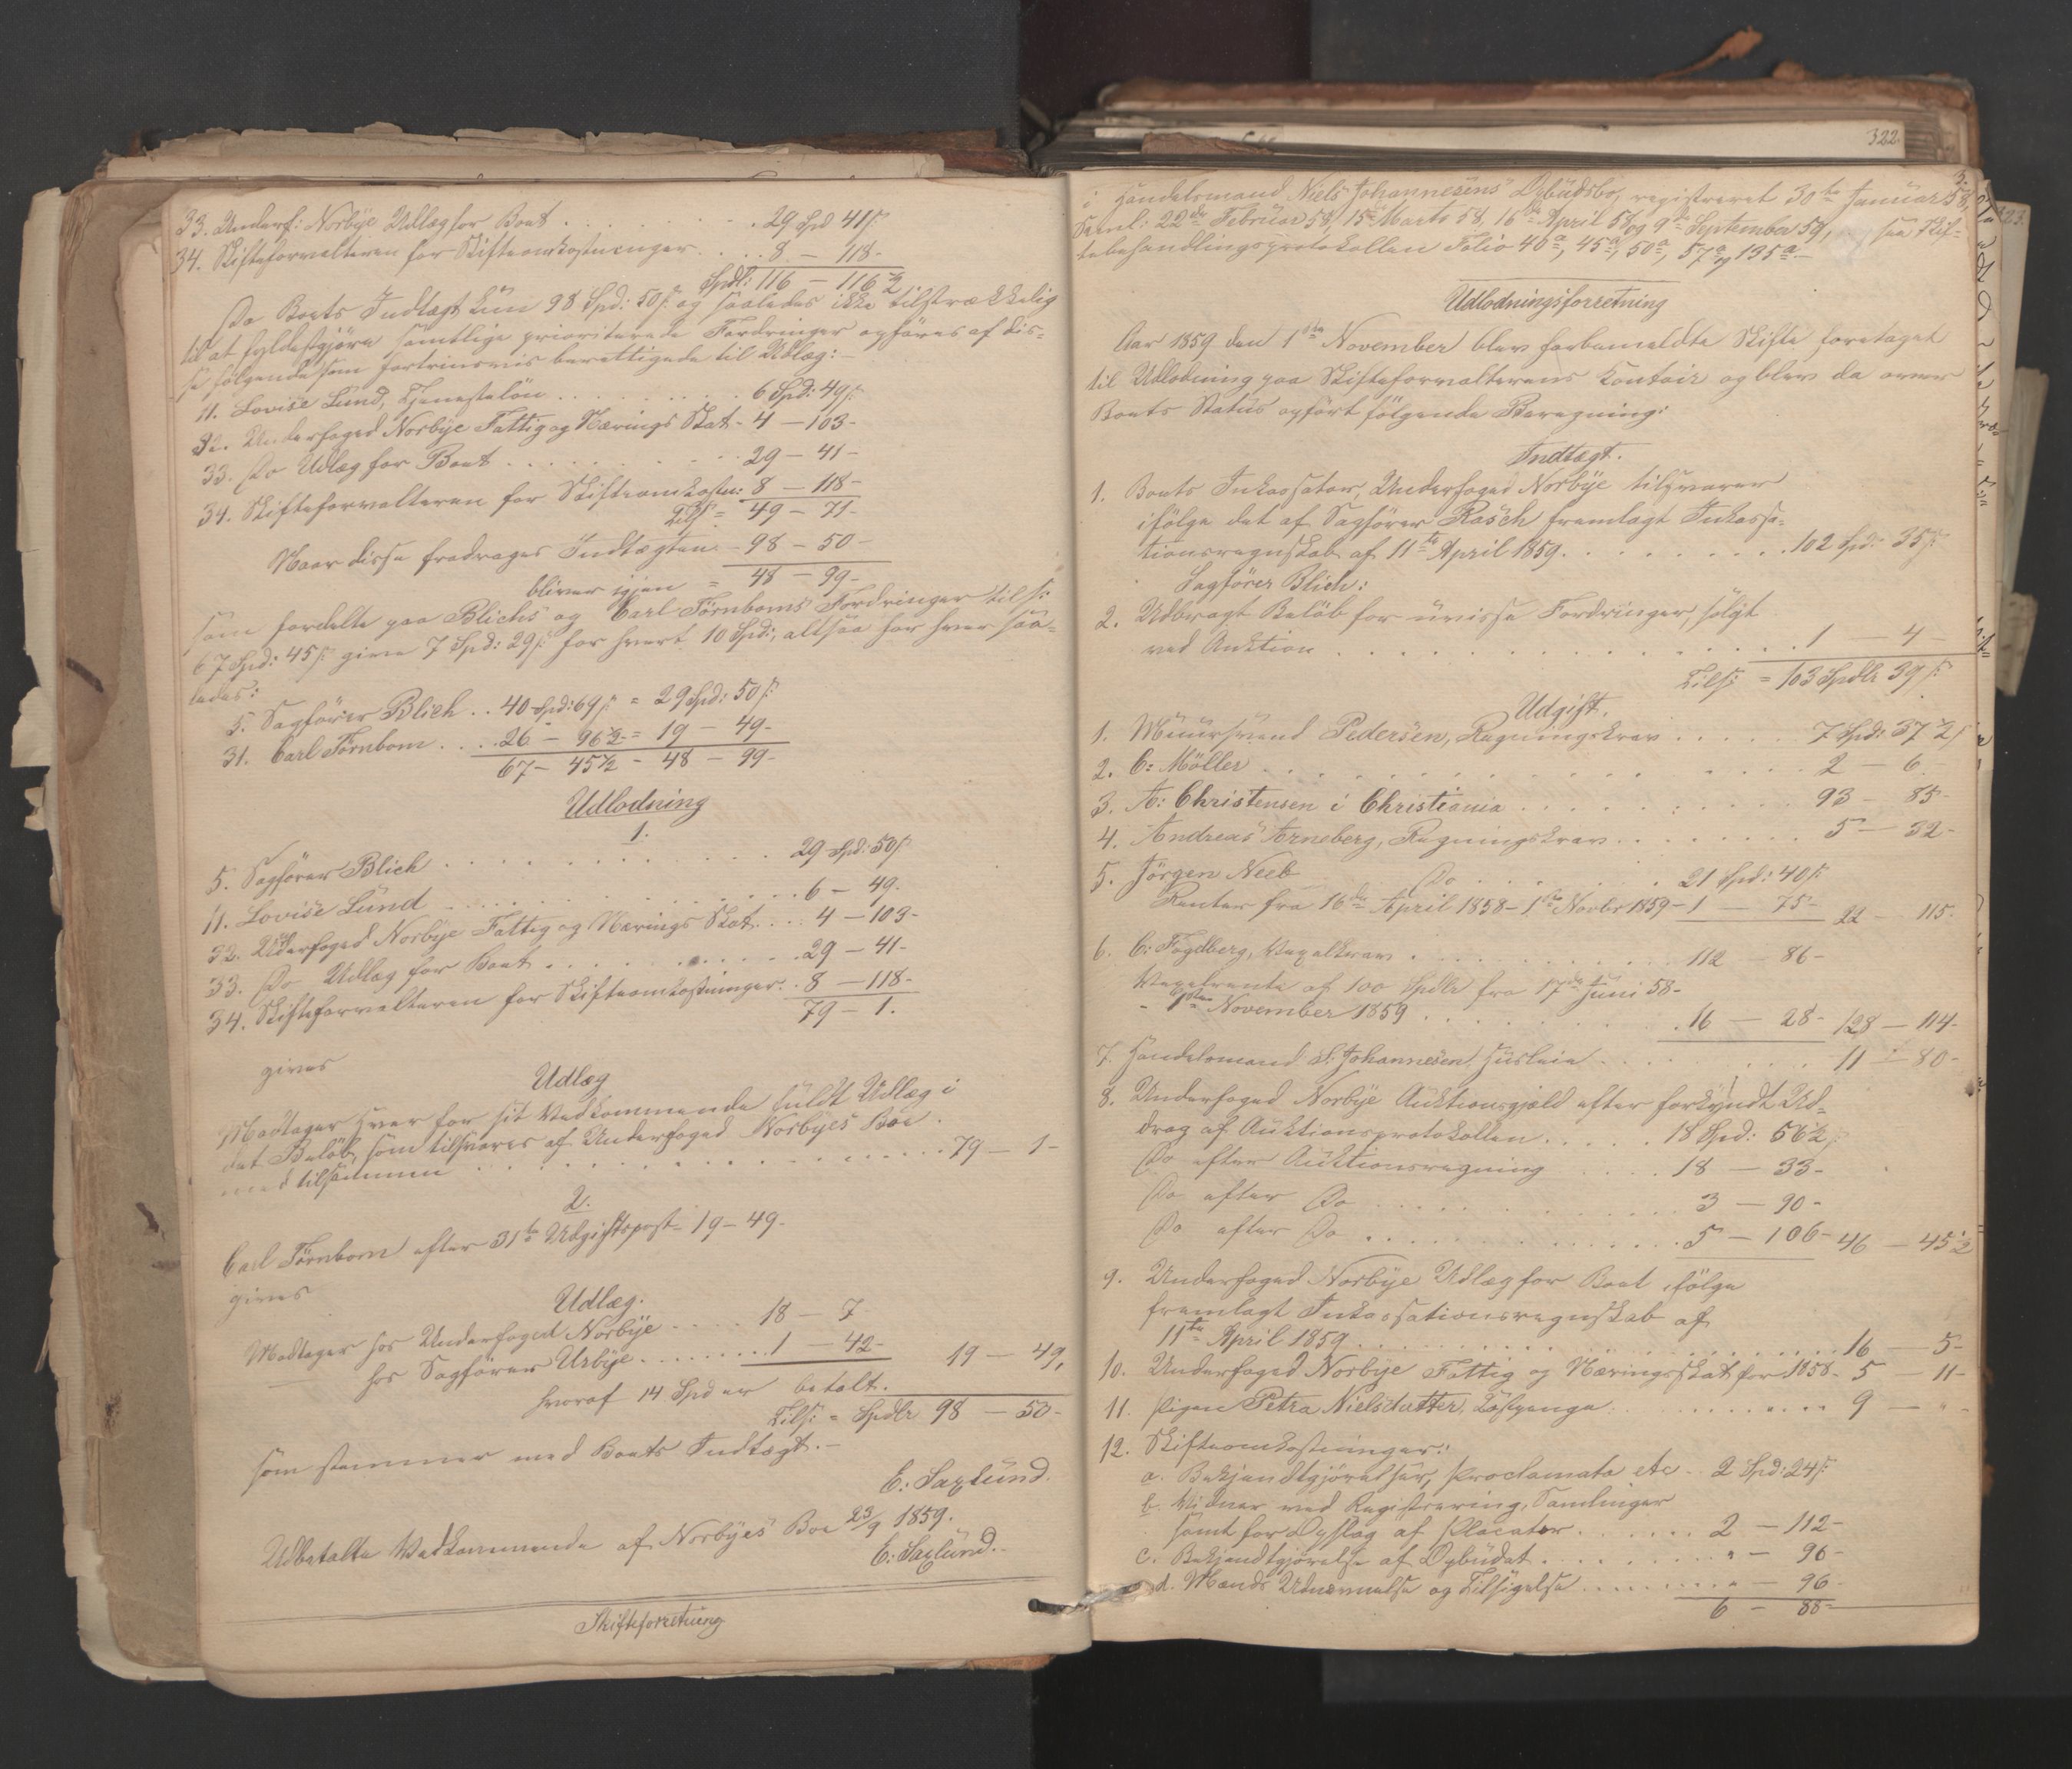 33. Underf: Norbÿe Udlæg for Boet . . . . . 29 Spd 41 ß
34. Skifteforvalteren for Skifteomkostninger . . . . 8 – 118 –
Spdl: 116 – 116 1/2
Da Boets Indtægt kun 98 Spd: 50 ß og saaledes ikke tilstrækkelig
til at fyldestgjöre samtlige prioriterede Fordringer opföres af dis-
se fölgende som fortrinsvis berettigede til Udlæg: –
11. Lovise Lund, Tjenestelön . . . . . . . 6 Spd: 49 ß
32. Underfoged Norbÿe Fattig og Nærings Skat – 4 – 103 –
33. Do Udlæg for Boet . . . . . . . 29 – 41 –
34. Skifteforvalteren for Skifteomkostn: 8 – 118 –
Tils = 49 – 71 –
Naar disse fradrages Indtægten – 98 – 50 –
bliver igjen = 48 – 99 –
som fordelte paa Blichs og Carl Törnboms Fordringer tils:
67 Spd: 45 ß give 7 Spd: 29 ß for hvert 10 Spd:, altsaa for hver saa-
ledes:
5. Sagförer Blich . . 40 Spd: 69 ß = 29 Spd: 50 ß
31. Carl Törnbom . . . . 26 – 96 1/2 = 19 – 49 –
67 – 45 1/2 – 48 – 99 –
Udlodning
1.
5. Sagförer Blich . . . . . . . . . 29 Spd: 50 ß
11. Lovise Lund . . . . . . . . . 6 – 49 –
32. Underfoged Norbÿe Fattig og Nærings Skat . . . 4 – 103 –
33. Do Udlæg for Boet . . . . . . . 29 – 41 –
34. Skifteforvalteren for Skifteomkostninger . . 8 – 118 –
79 – 1.
gives
Udlæg
Modtager hver for sit Vedkommende fuldt Udlæg i
det Beløb, som tilsvares af Underfoged Norbÿes Boe
med tilsammen . . . . . . . . . 79 – 1 –
2.
Carl Törnbom efter 31te Udgiftspost – 19 – 49 –
gives
Udlæg.
Modtager hos Underfoged Norbÿe . . . . 18 – 7
hos Sagförer Urbÿe . . . . . . 1 – 42 – 19 – 49,
hvoraf 14 Spd er betalt.
Tils: = Spdlr 98 – 50 –
som stemmer med Boets Indtægt. –
E: Saxlund.
Udbetalte Vedkommende af Norbÿes Boe 23/9 1859.
E: Saxlund.
Skifteforretning
322
i Handelsmand Niels Johannesens Opbudsbo, registreret 30te Januar 58,
Saml: 22de Februar 58, 15de Marts 58, 16de April 58 og 9de September 59, see Skif-
tebehandlingsprotokollen Folio 40a, 45a, 50a, 57a og 135a –
Udlodningsforretning
Aar 1859 den 1ste November blev forbemeldte Skifte foretaget
til Udlodning paa Skifteforvalterens Kontoir og blev da over
Boets Status opfört fölgende Beregning:
Indtægt.
1. Boets Inkassator, Underfoged Norbÿe tilsvarer
ifölge det af Sagförer Rasch fremlagt Inkassa-
tionsregnskab af 11te April 1859 . . . . . . . . . 102 Spd: 35 ß
Sagförer Blich:
2. Udbragt Belöb for uvisse Fordringer, solgt
ved Auktion . . . . . . . . . . . . 1 – 4 –
Tils: = 103 Spdlr 39 ß
Udgift.
1. Muursvend Pedersen, Regningskrav . . . . . 7 Spd: 37 1/2 ß
2. C: Möller . . . . . . . . . . . . 2 – 6 –
3. A: Christensen i Christiania . . . . . . . . 93 – 85 –
4. Andreas Arneberg, Regningskrav . . . . . . . 5 – 32 –
5. Jörgen Neeb Do . . . . . . 21 Spd: 40 ß
Renter fra 16de April 1858 – 1ste Novbr 1859 – 1 – 75 – 22 – 115 –
6. C: Fogdberg, Vexelkrav . . . . . . . . 112 – 86 –
Vexelrente af 100 Spdlr fra 17de Juni 58 –
– 1ste November 1859 . . . . . . . . . 16 – 28 – 128 – 114 –
7. Handelsmand S: Johannesen Husleie . . . . . . 11 – 80 –
8. Underfoged Norbÿe Auktionsgjæld efter forkyndt Ud-
drag af Auktionsprotokollen . . . . . 18 Spd: 56 1/2 ß
Do efter Auktionsregning . . . . 18 – 33 –
Do efter Do . . . . . . . . . . . 3 – 90 –
Do efter Do . . . . . . . . . . . 5 – 106 – 46 – 45 1/2
9. Underfoged Norbÿe Udlæg for Boet ifölge
fremlagt Inkassationsregnskab af
11te April 1859 . . . . . . . . . . . . 16 – 5 –
10. Underfoged Norbÿe Fattig og Næringsskat for 1858 – 5 – 11 –
11. Pigen Petra Nielsdatter, Kostpenge . . . . . . . . 9 – " –
12. Skifteomkostninger:
a. Bekjendtgjörelser, Proclamata etc . . 2 Spd: 24 ß
b. Vidner ved Registrering, Samlinger
samt for Opslag af Placater . . . . . . 2 – 112 –
c. Bekjendtgjörelse af Opbudet . . . . . . . . " – 96 –
d. Mænds Udnævnelse og Tilsigelse . . . . . . . " – 96 –
6 – 88 –